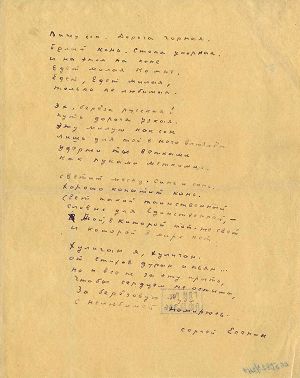 Вижу сон. Дорога черная.
Белый конь. Стопа упорная.
И на этом на коне
Едет милая ко мне.
Едет, едет милая,
Только не любимая.
Эх, береза русская!
Путь дорога узкая.
Эту милую как сон
Лишь для той в кого влюблен
Удержи ты ветками
Как руками меткими.
Светит месяц. Синь и сонь.
Хорошо копытит конь.
Свет такой таинственный
Словно для Единственной, —
Той, в которой тот же свет
И которой в мире нет.
Хулиган я, хулиган.
От стихов дурак и пьян.
Но и все ж за эту прыть,
Чтобы сердцем не остыть,
За березовую
С нелюбимой помирюсь.
Сергей Есенин